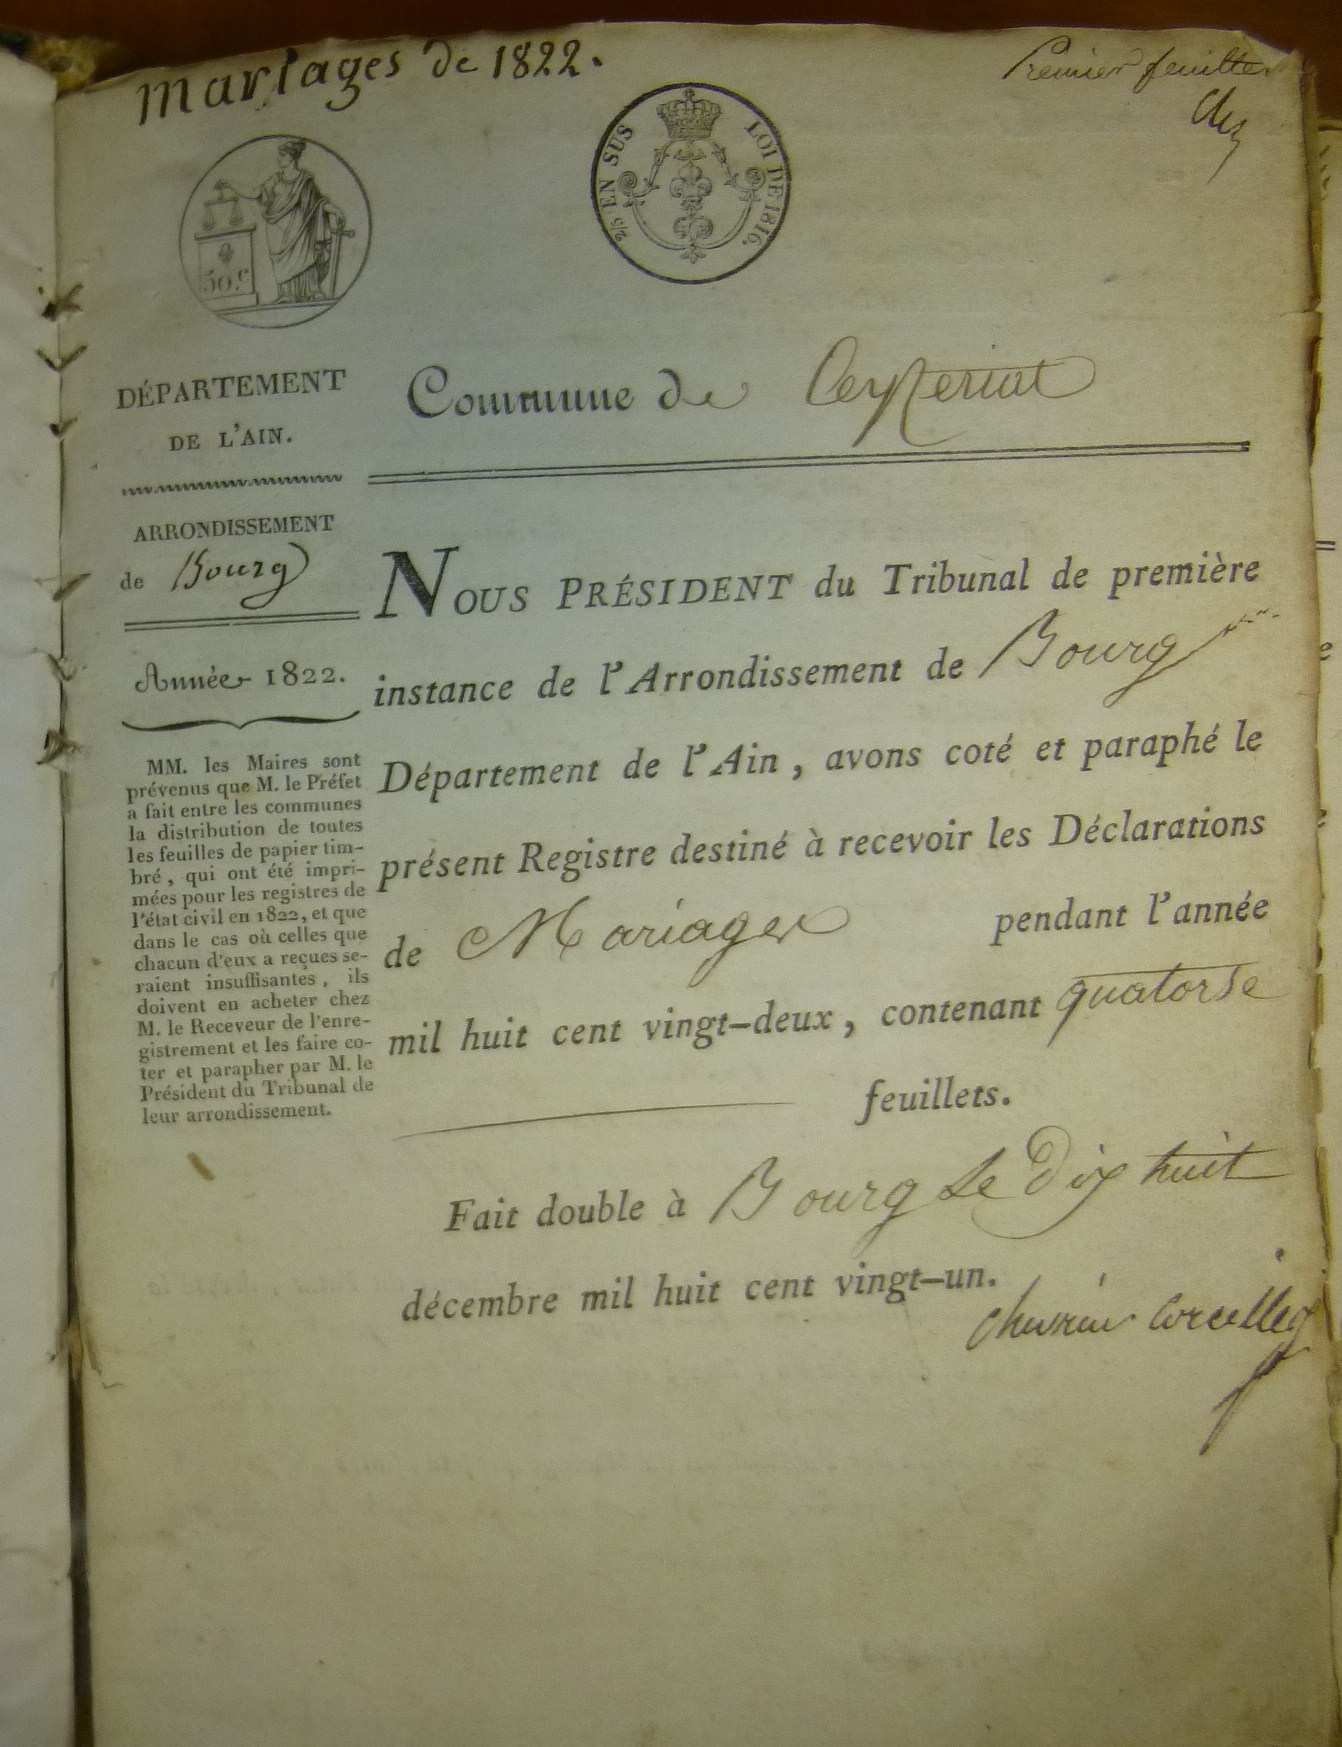 Mariages de 1822.
Premier feuillet
2/5 EN SUS
LOI DE 1816.
50.c
DÉPARTEMENT
DE L'AIN.
Commune de Ceyzeriat
ARRONDISSEMENT
de Bourg
Année 1822.
MM. les Maires sont
prévenus que M. le Préfet
a fait entre les communes
la distribution de toutes
les feuilles de papier tim-
bré, qui ont été impri-
mées pour les registres de
l'état civil en 1822, et que
dans le cas où celles que
chacun d'eux a reçues se-
raient insuffisantes, ils
doivent en acheter chez
M. le Receveur de l'enre-
gistrement et les faire co-
ter et parapher par M. le
Président du Tribunal de
leur arrondissement.
NOUS PRÉSIDENT du Tribunal de première
instance de l'Arrondissement de Bourg
Département de l'Ain, avons coté et paraphé le
présent Registre destiné à recevoir les Déclarations
de Mariages pendant l'année
mil huit cent vingt-deux, contenant quatorse
feuillets.
Fait double à Bourg le Dix huit
décembre mil huit cent vingt-un.